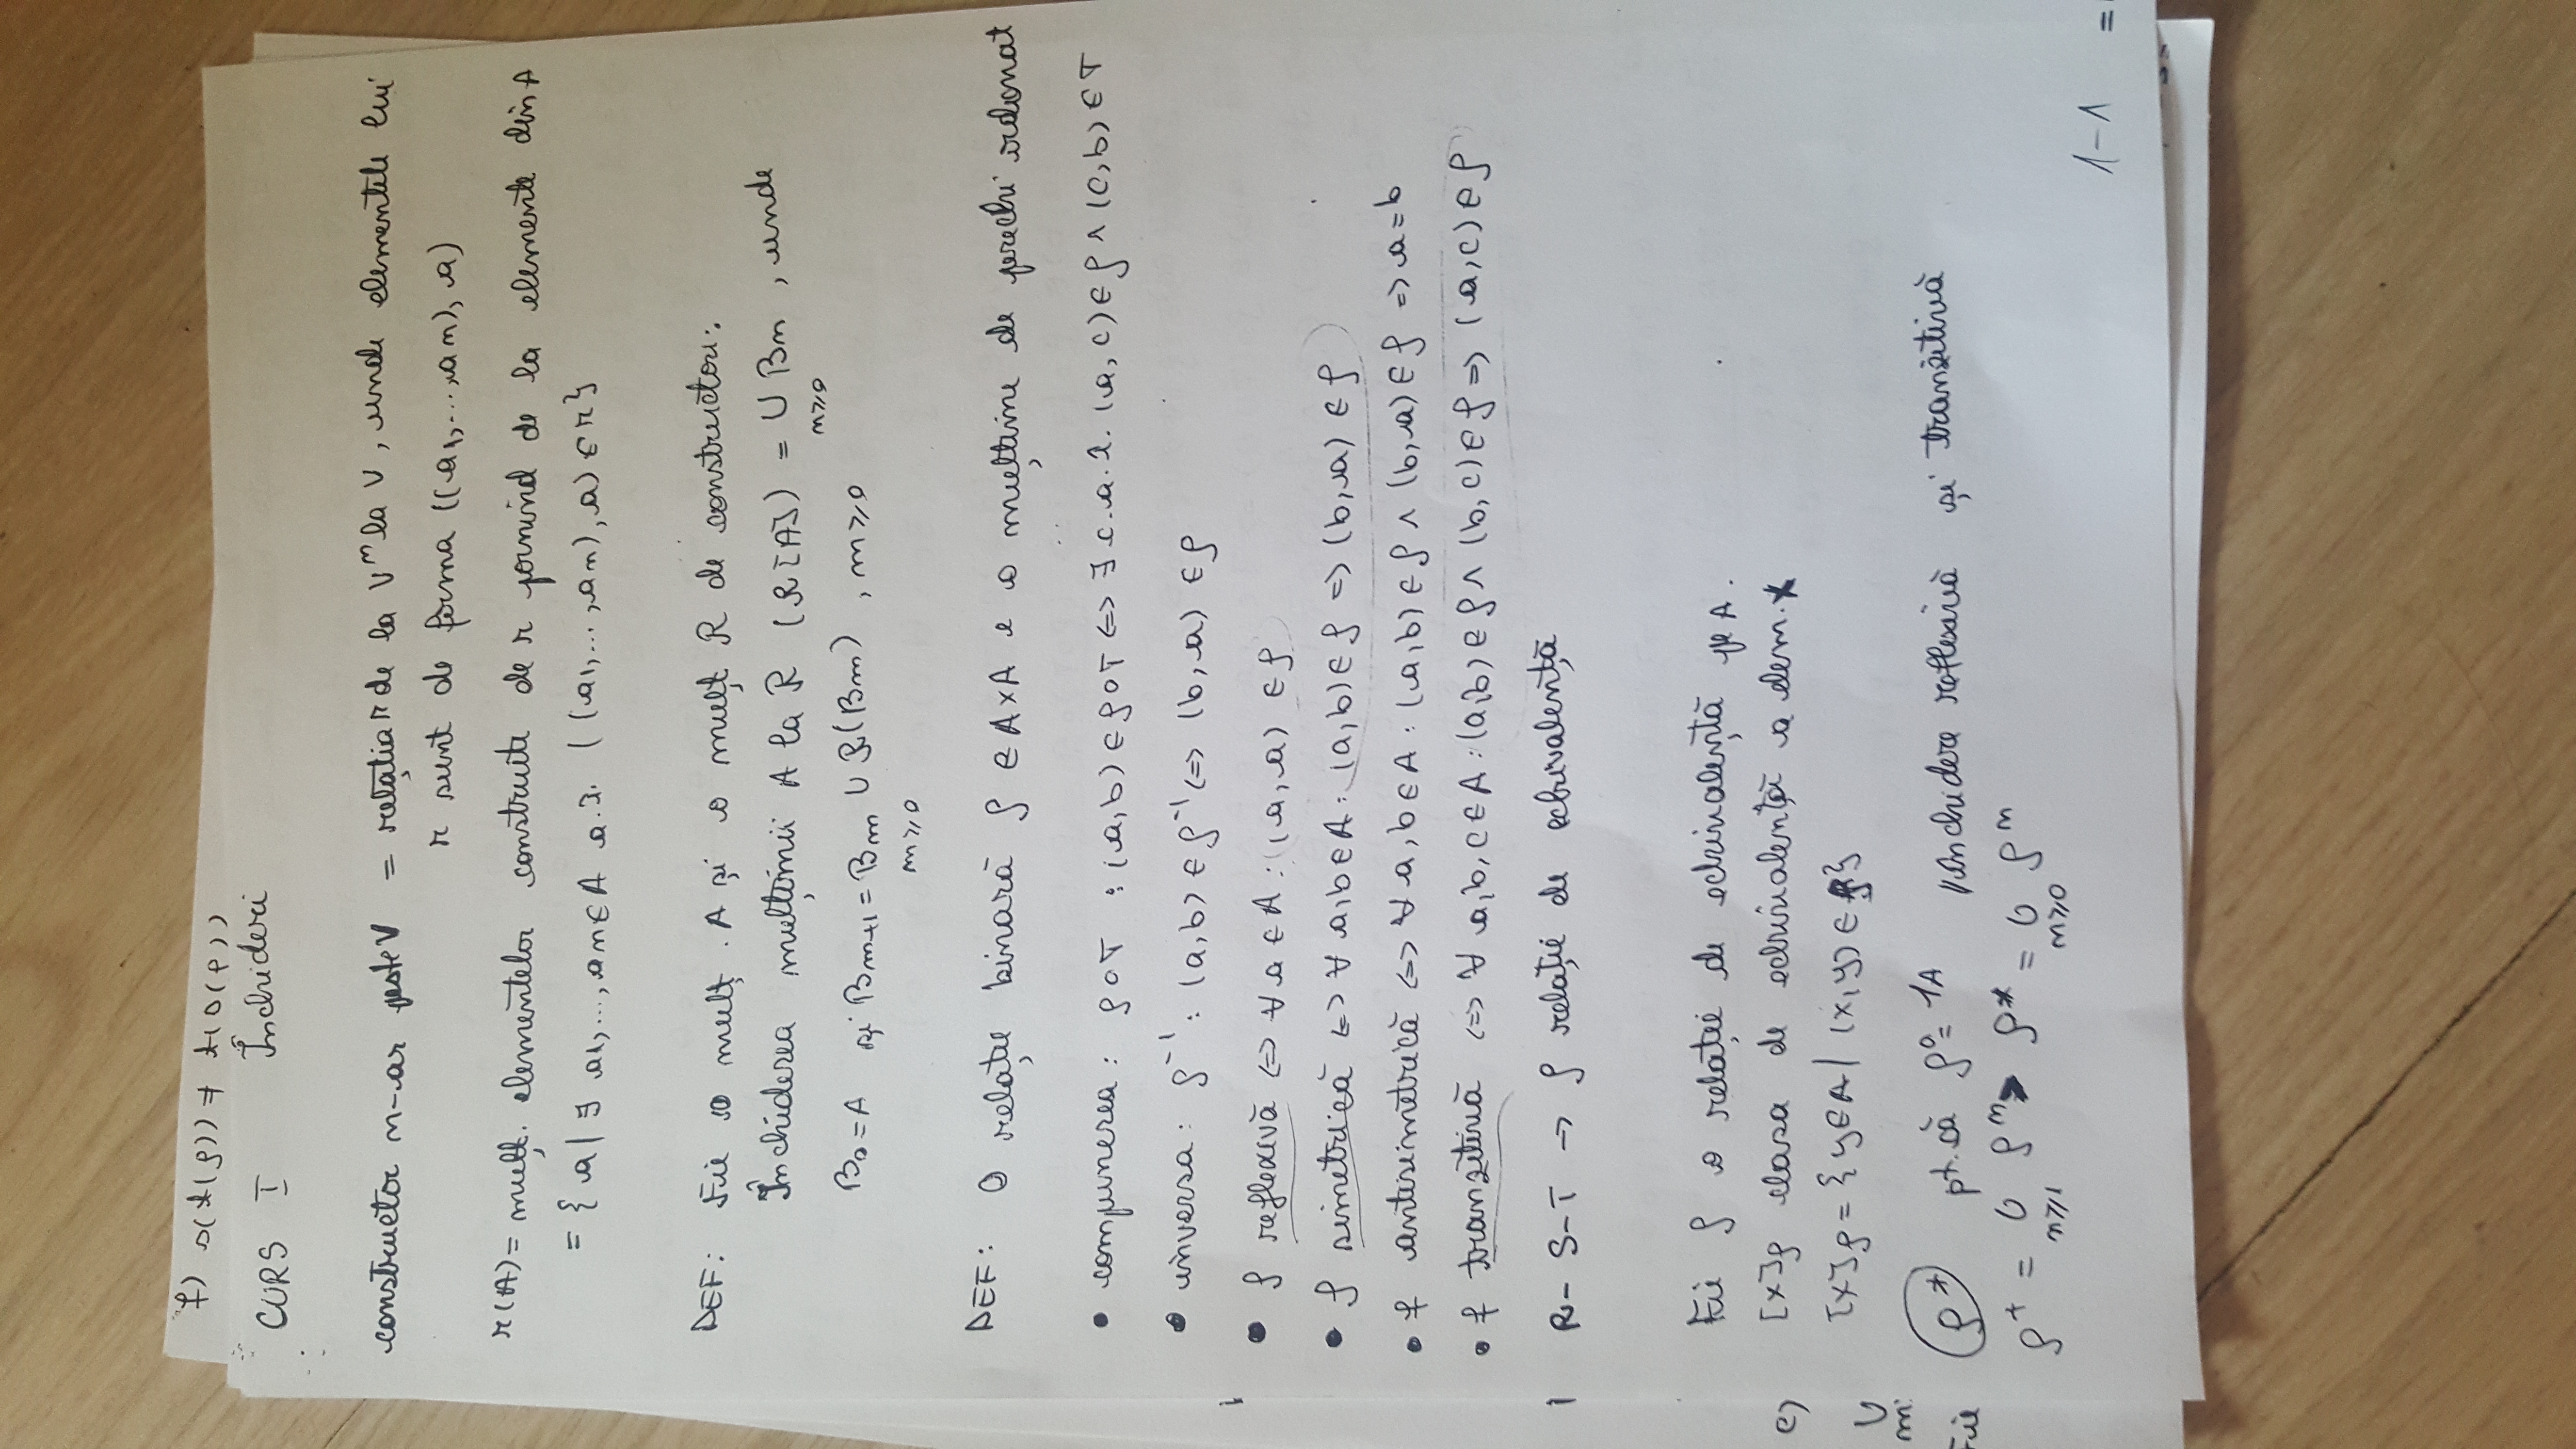 f) s(t(ρ)) ≠ t(s(ρ))
CURS I Închideri
constructor n-ar peste V = relația r de la Vⁿ la V, unde elementele lui
r sunt de forma ((a1,...,an), a)
r(A) = mulț. elementelor construite de r pornind de la elemente din A
= { a | ∃ a1,...,an∈A a.î. ((a1,...,an), a) ∈ r}
DEF: Fie o mulț. A și o mulț R de constructori.
Închiderea mulțimii A la R (R[A]) = ∪ Bm , unde
m≥0
B0=A și Bm+1 = Bm ∪ R(Bm) , m≥0
m≥0
DEF: O relație binară ρ ∈ A×A e o mulțime de perechi ordonat
• compunerea: ρ∘T : (a,b) ∈ ρ∘T <=> ∃ c.a.î. (a,c)∈ρ ∧ (c,b) ∈ T
• inversa: ρ⁻¹: (a,b) ∈ ρ⁻¹ <=> (b,a) ∈ ρ
• ρ reflexivă <=> ∀ a ∈ A : (a,a) ∈ ρ
• ρ simetrică <=> ∀ a,b∈A : (a,b)∈ρ => (b,a) ∈ ρ
• ρ antisimetrică <=> ∀ a,b∈A : (a,b)∈ρ ∧ (b,a)∈ρ => a=b
• ρ tranzitivă <=> ∀ a,b,c∈A : (a,b)∈ρ ∧ (b,c)∈ρ => (a,c)∈ρ
R- S-T → ρ relație de echivalență
Fie ρ o relație de echivalență pe A.
e) [x]ρ clasa de echivalență a elem. x
[x]ρ = {y∈A | (x,y) ∈ ρ}
∪
m:
Fie ρ* pt. că ρ⁰= 1A închidere reflexivă și tranzitivă
ρ⁺ = ∪ ρⁿ > ρ* = ∪ ρⁿ
n≥1 n≥0
1-1 =